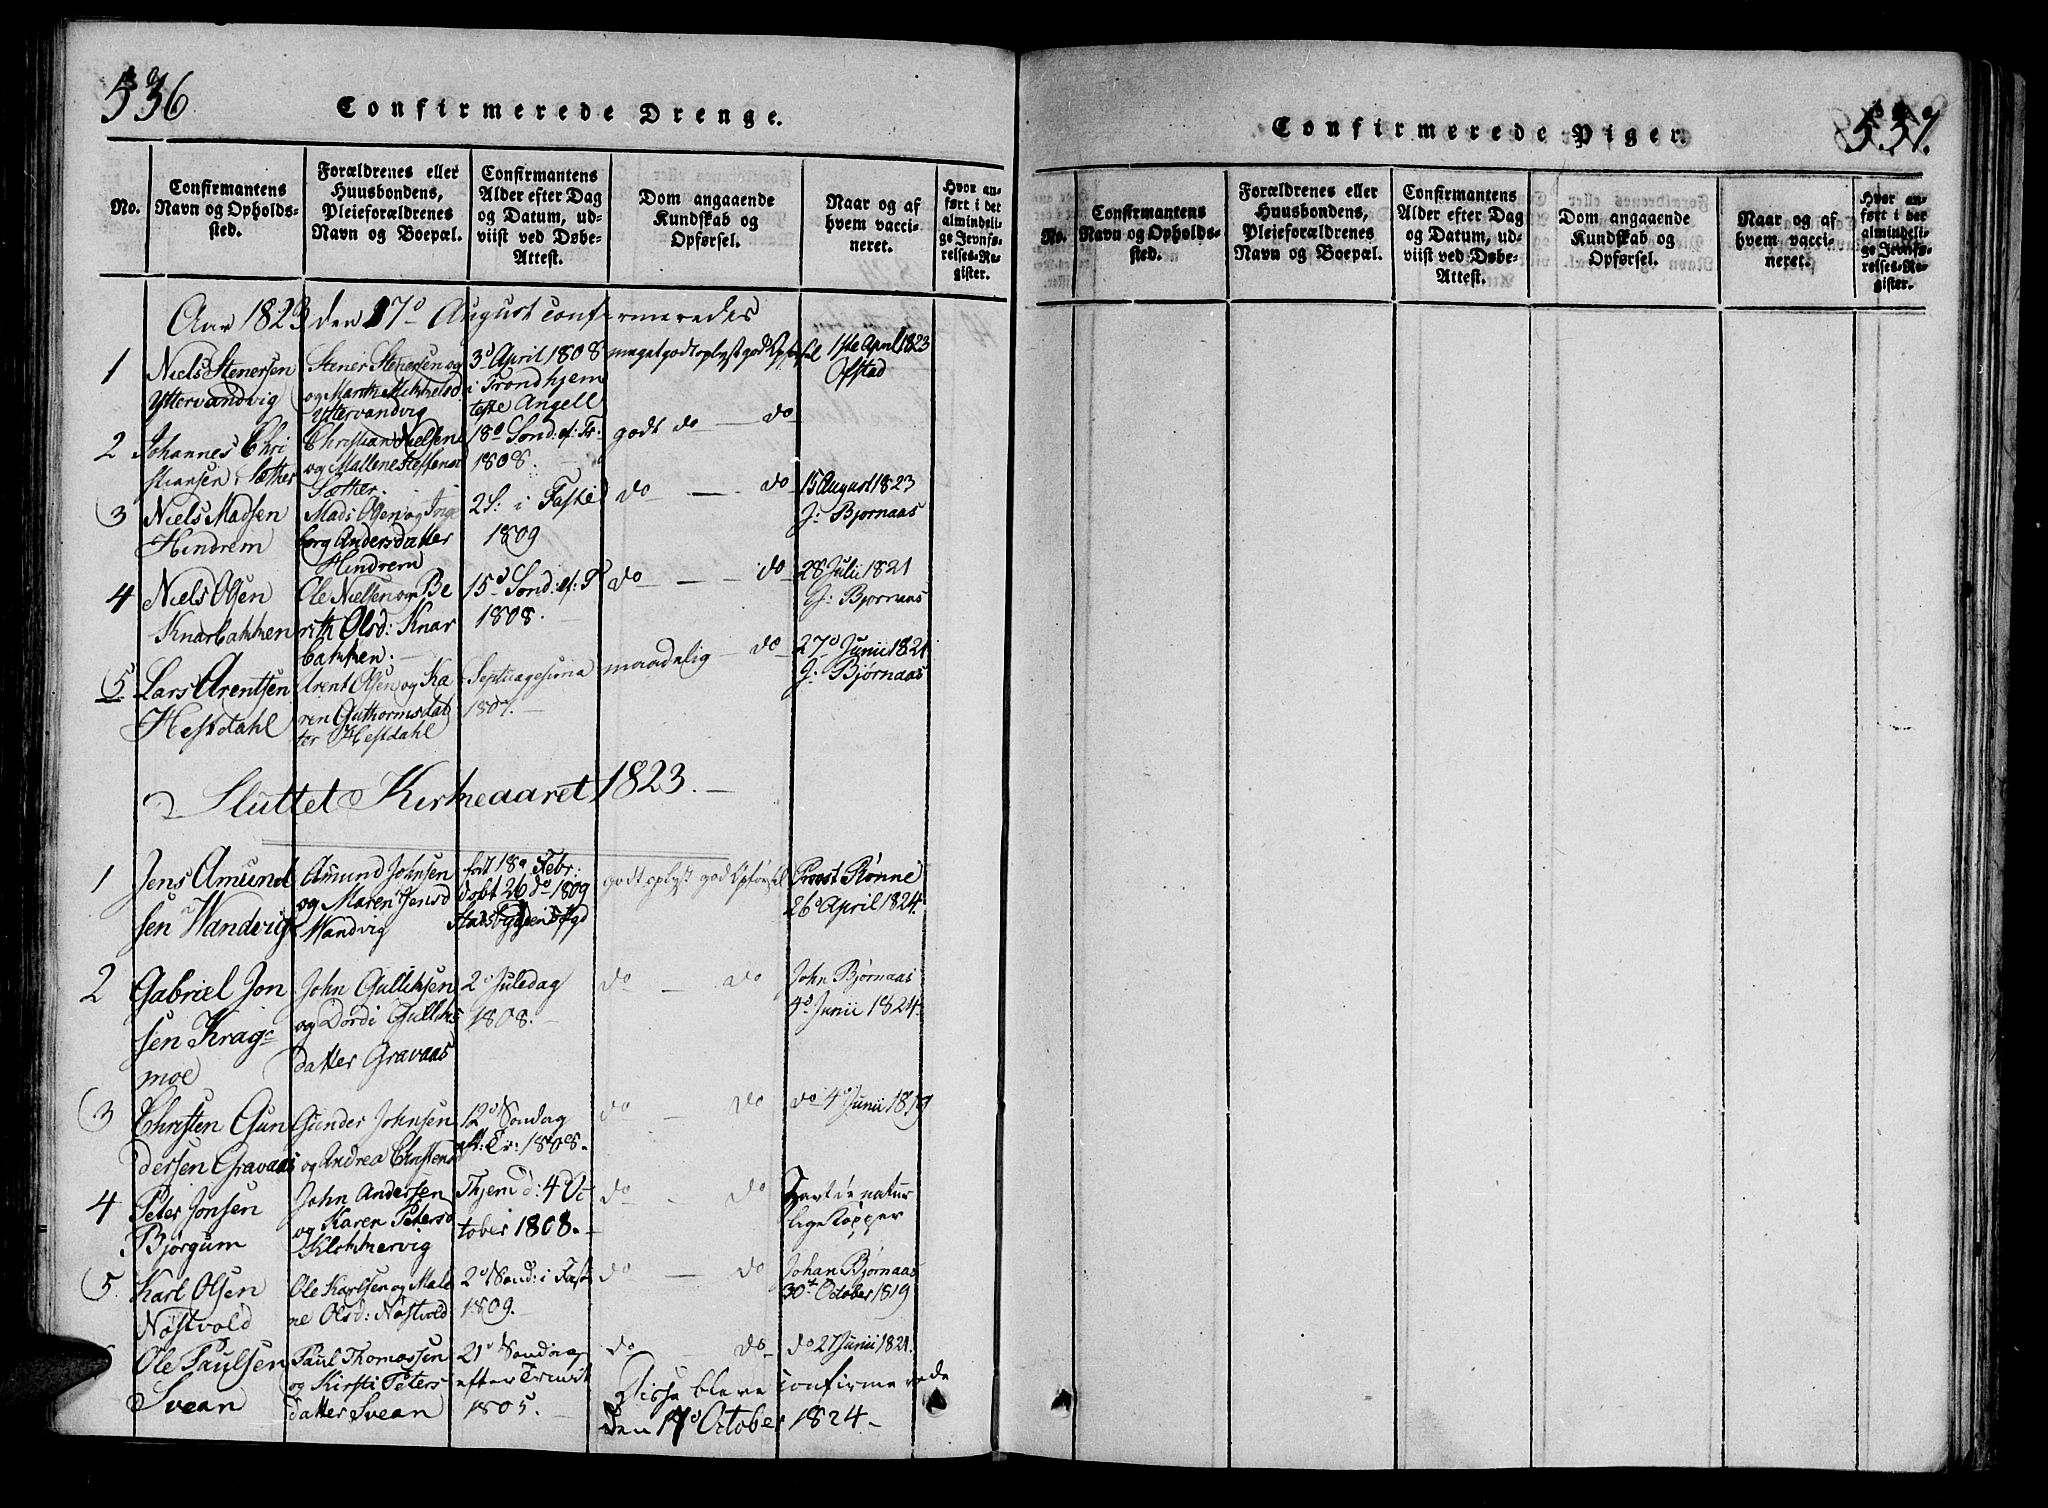 536
Confirmerede Drenge.
No.
Confirmantens Navn og Opholdssted.
Forældrenes eller Huusbondens, Pleieforældrenes Navn og Boepæl.
Confirmantens Alder efter Dag og Datum, udviist ved Døbe-Attest.
Dom angaaende Kundskab og Opførsel.
Naar og af hvem vaccineret.
Hvor anført i det almindelige Jevnførelses-Register.
Aar 1823 den 17de August confirmeredes
1
Niels Stenersen
Yttervandvig
Stener Stenersen og
og Marth Mikkelsd
Yttervandvig
3d April 1808
i Trondhjem
teste Angell
meget godt oplyst god Opførsel
1ste April 1823
Ofstad
2
Johannes Chri
stiansen Sæther
Christian Nielsen
og Mallene Steffensd
Sæther.
18d Sond: ef: Tr.
1808.
godt do — do
3
Niels Madsen
Hindrem
Mads Olsen og Inge
borg Andersdatter
Hindrem
2 S: i Faste
1809
do — do
15 August 1823
J: Bjørnaas
4
Niels Olsen
Knarbakken
Ole Nielsen og Be
rith Olsd: Knar
bakken.
15d Sond: ef: T
1808.
do — do
28 Julii 1821
J: Bjørnaas
5
Lars Arentsen
Hestdahl
Arent Olsen og Ka
ren Guthormsdat
ter Hestdahl
Septuagesima
1807.
maadelig — do
27d Junii 1821
J: Bjørnaas
Sluttet Kirkeaaret 1823.
1
Jens Amund
sen Wandvig
Amund Johnsen
og Maren Jensd
Wandvig
født 18d Febr:
døbt 26 do 1809
Stadsbygdens Pgd
godt oplyst god Opførsel
Provst Rønne
26d April 1824.
2
Gabriel Jon
sen Krag
moe
John Gulliksen
og Dordi Gulliks
datter Gravaas
2d Juledag
1808.
do — do
John Bjørnaas
4d Junii 1824.
3
Christen Gun
dersen Gravaas
Gunder Johnsen
og Andrea Christensd
12d Søndag
eft: Tr: 1808.
do — do
do 4d Junii 1819
4
Peter Jonsen
Bjørgum
John Andersen
og Karen Petersd
Klommervig
Thjem d: 4 Oc
tober 1808.
do — do
Havt de natur
lige Kopper
5.
Karl Olsen
Nøstvold
Ole Karlsen og Male
ne Olsd: Nøstvold
2d Sønd: i Faste
1809.
do — do
Johan Bjørnaas
30te October 1819
Ole Paulsen
Svean
Paul Thomassen
og Kirsti Peters
datter Svean
21d Søndag
efter Trinit
1805.
do — do
do 27 Junii 1821.
Disse bleve confirmerede
den 17d October 1824.
537.
Confirmerede Piger.
No.
Confirmantens Navn og Opholdssted.
Forældrenes eller Huusbondens, Pleieforældrenes Navn og Boepæl.
Confirmantens Alder efter Dag og Datum, udviist ved Døbe-Attest.
Dom angaaende Kundskab og Opførsel.
Naar og af hvem vaccineret.
Hvor anført i det almindelige Jevnførelses-Register.